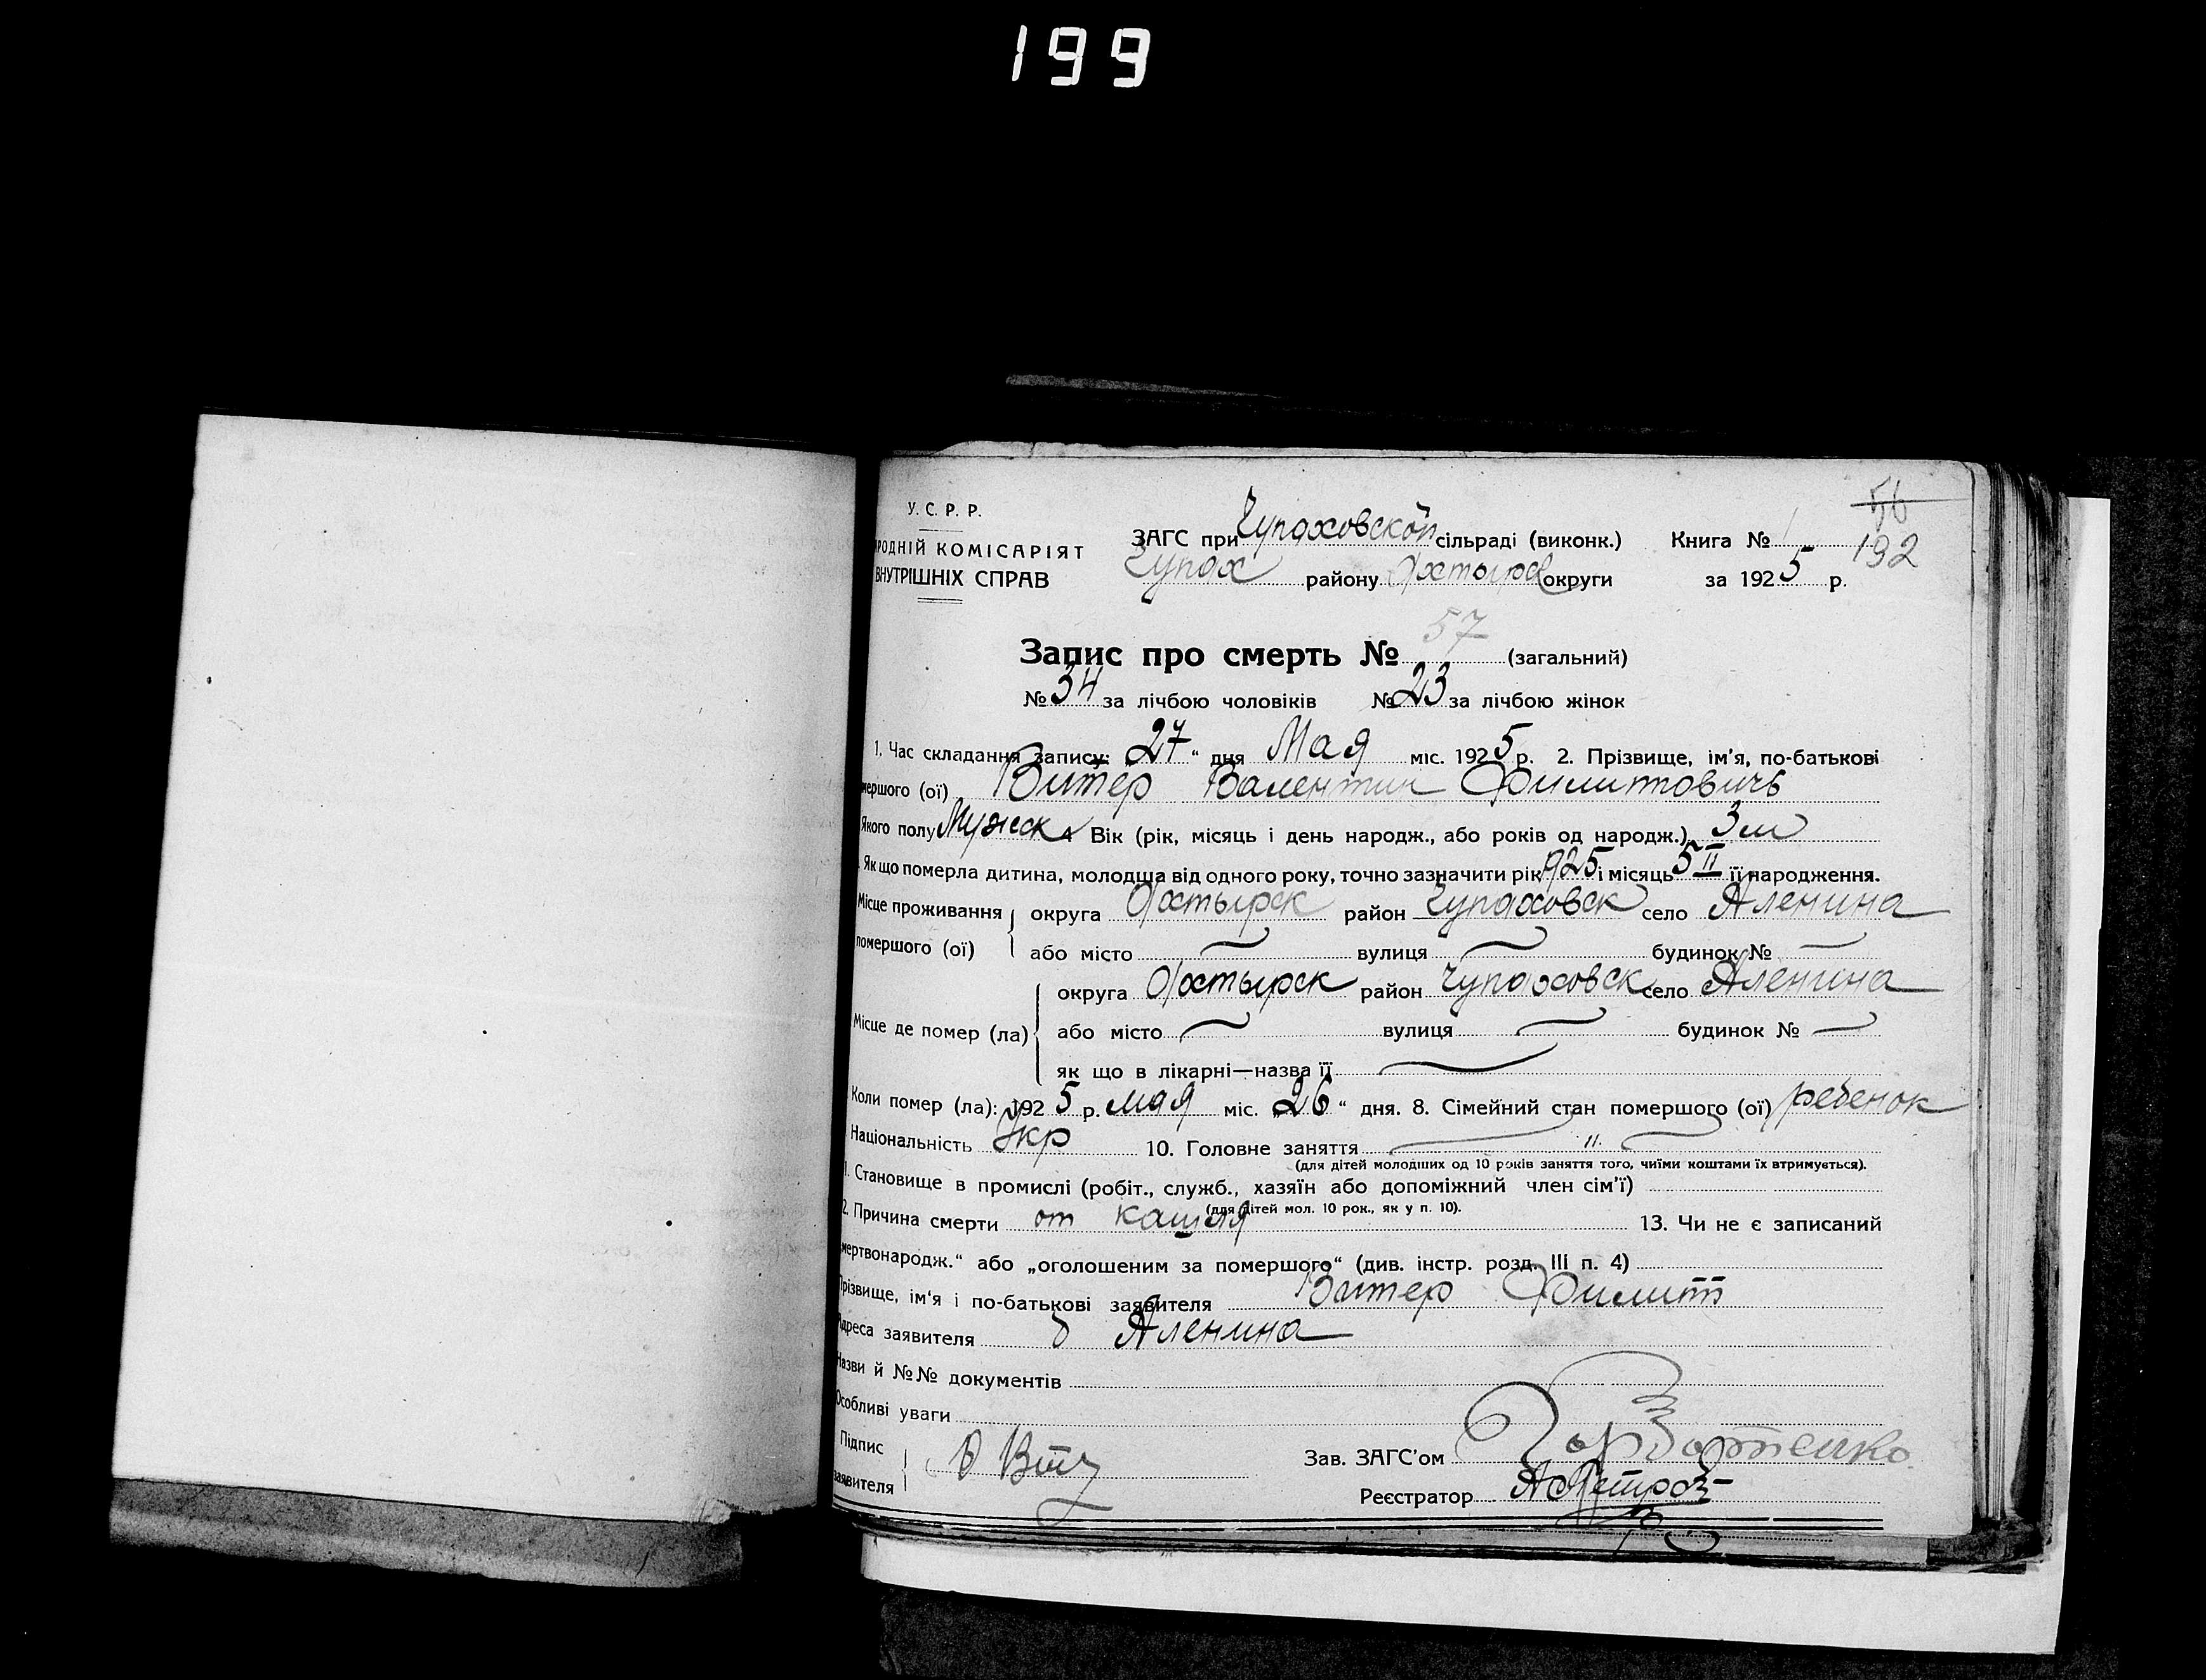 199
56
192
У. С. Р. Р.
РОДНІЙ КОМІСАРІЯТ
ВНУТРІШНІХ СПРАВ
ЗАГС при Чупаховской сільраді (виконк.) Книга № 1
Чупах району Охтырс округи за 1925 р.
Запис про смерть № 57 (загальний)
№ 34 за лічбою чоловіків № 23 за лічбою жінок
1. Час складання запису: 27 " дня Мая міс. 1925 р. 2. Прізвище, ім'я, по-батькові
мершого (ої) Витер Валентин Филиптовичь
Якого полу Мужск 4 Вік (рік, місяць і день народж., або років од народж.) 3 м
Як що померла дитина, молодша від одного року, точно зазначити рік 1925 і місяць 5 II її народження.
Місце проживання округа Охтырск район Чупаховск село Аленина
помершого (ої) або місто вулиця будинок №
округа Охтырск район Чупаховск село Аленина
Місце де помер (ла) або місто вулиця будинок №
як що в лікарні—назва її
Коли помер (ла): 1925 р. мая міс. „26“ дня. 8. Сімейний стан помершого (ої) ребенок
Національність Укр 10. Головне заняття
(для дітей молодших од 10 років заняття того, чиїми коштами їх втримується).
1. Становище в промислі (робіт., служб., хазяїн або допоміжний член сім'ї)
(для дітей мол. 10 рок., як у п. 10).
2. Причина смерти от кашля 13. Чи не є записаний
мертвонародж.“ або „оголошеним за помершого“ (див. інстр. розд. III п. 4)
Прізвище, ім'я і по-батькові заявителя Витер Филипт
Адреса заявителя Аленина
Назви й №№ документів
Особливі уваги
Підпис
заявителя
Зав. ЗАГС'ом
Реєстратор А Петров